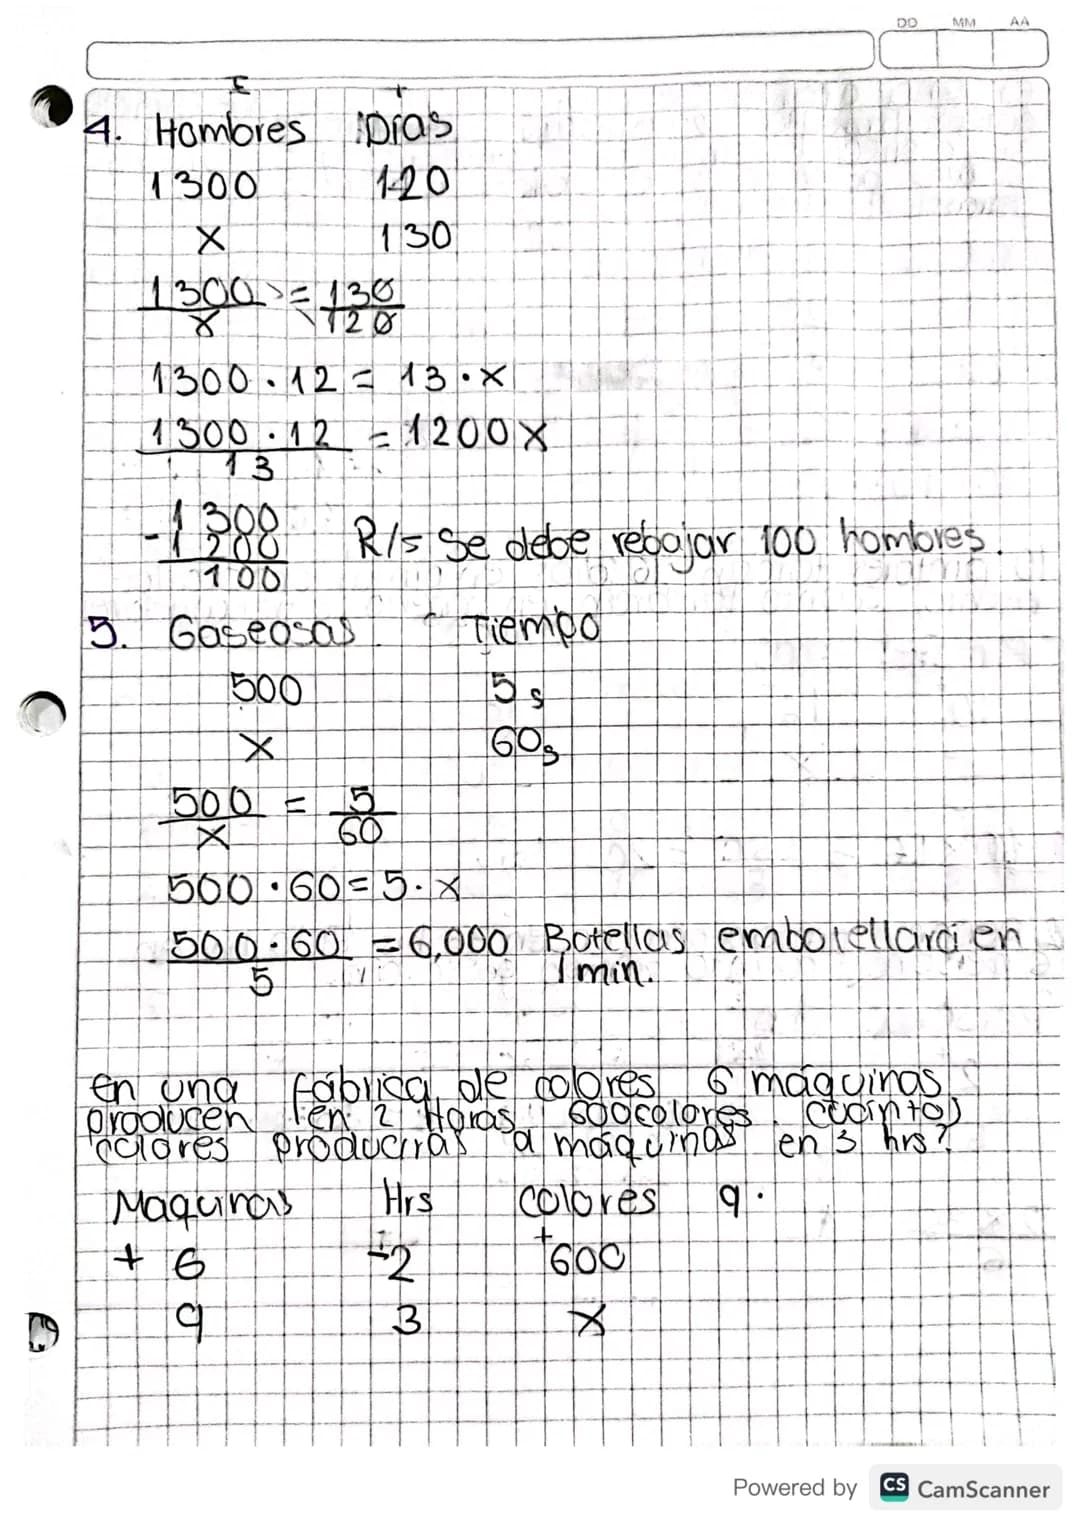 DD MM AA
4. Hombres Dias
1300 120
x 130
1300/x = 130/120
1300 · 12 = 13 · x
1300 · 12/13 = 1200x
-1300
1200
100
R/= Se debe rebajar 100 hombres.
5. Gaseosas Tiempo
500 5s
x 60s
500/x = 5/60
500 · 60 = 5 · x
500 · 60/5 = 6,000 Botellas embotellará en
1 min.
En una fábrica de colores 6 máquinas
producen en 2 Horas 600 colores
colores producirás a máquinas en 3 hrs?
Maquinas Hrs colores 9.
+ 6 2 + 600
9 3 x
Powered by CS CamScanner